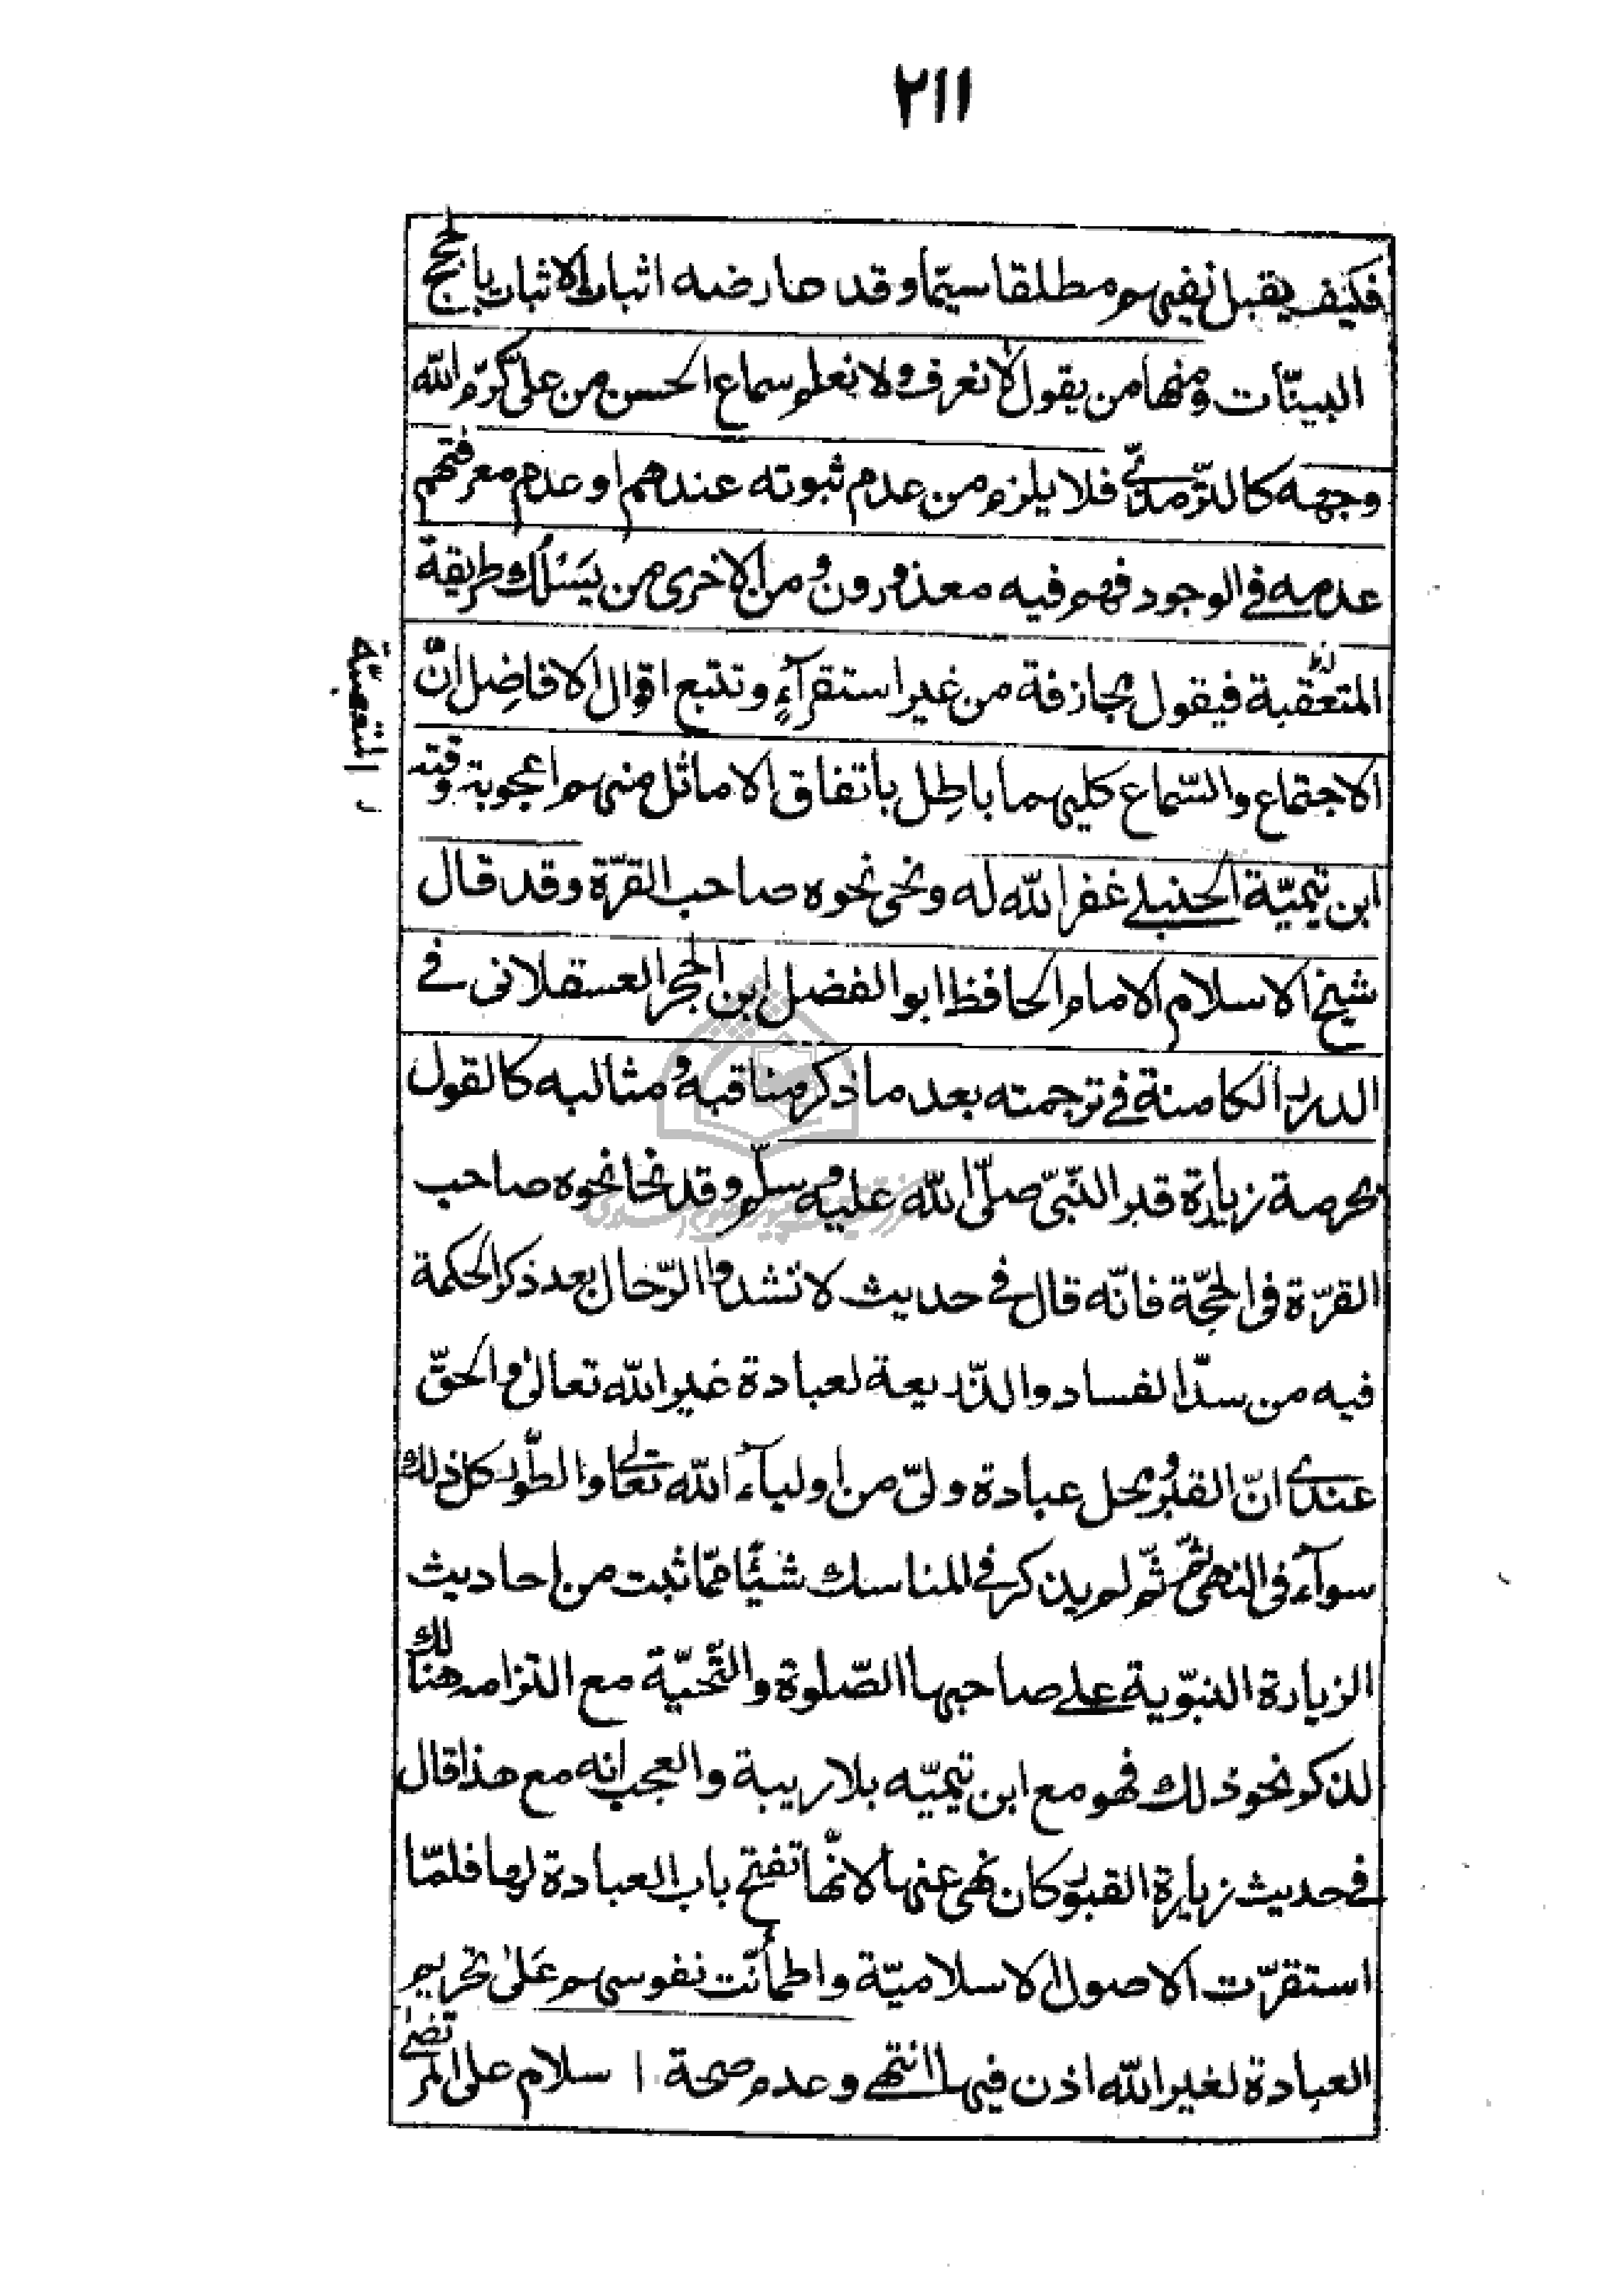 ٢١١
فكيف يقبل نفيهم مطلقا سيّما وقد عارضه اثبات الاثبات بالحجج
البينّات ومنها من يقول لا نعرف ولا نعلم سماع الحسن من علىّ كرّم الله
وجهه كالترّمذىّ فلا يلزم من عدم ثبوته عندهم او عدم معرفتهم
عدمه فى الوجود فهم فيه معذورون ومن الاخرى من يَسْلُك طريقة
المتعقبة فيقول مجازفة من غير استقرآءٍ وتتبع اقوال الافاضِل انّ
المتعصبّة
الاجتماع والسّماع كليهما باطِل باتفاق الاماثل منهم اعجوبة وقته
ابن تيميّة الحنبلے غفر الله له ونحى نحوه صاحب القرّة وقد قال
شيخ الاسلام الامام الحافظ ابو الفضل ابن الحجر العسقلانى فے
الدرر الكامنة فے ترجمته بعد ما ذكر مناقبه ومثالبه كالقول
بحرمة زيارة قبر النّبىّ صلّى الله عليه وسلّم وقد نحا نحوه صاحب
القرّة فى الحجّة فانّه قال فے حديث لا تشدوا الرّحال بعد ذكر الحكمة
فيه من سدّ الفساد والذّريعة لعبادة غير الله تعالىٰ والحقّ
عندى انّ القبر ومحل عبادة ولىّ من اولياۤء الله تعالى والطّور كل ذلك
سوآء فى النهى ثمّ لم يذكر فے المناسك شيئًا ممّا ثبت من احاديث
الزيارة النبّوية علے صاحبها الصّلوة والتّحيّة مع التزامه هنالك
لذكر نحو ذلك فهو مع ابن تيميّه بلا ريبة والعجب انه مع هذا قال
فے حديث زيارة القبور كان نهى عنها لانّها تفتح باب العبادة لها فلمّا
استقرّت الاصول الاسلاميّة واطمأنّت نفوسهم عَلىٰ تحريم
العبادة لغير الله اذن فيها انتهے وعدم صحة ا سلام على المرتضےٰ